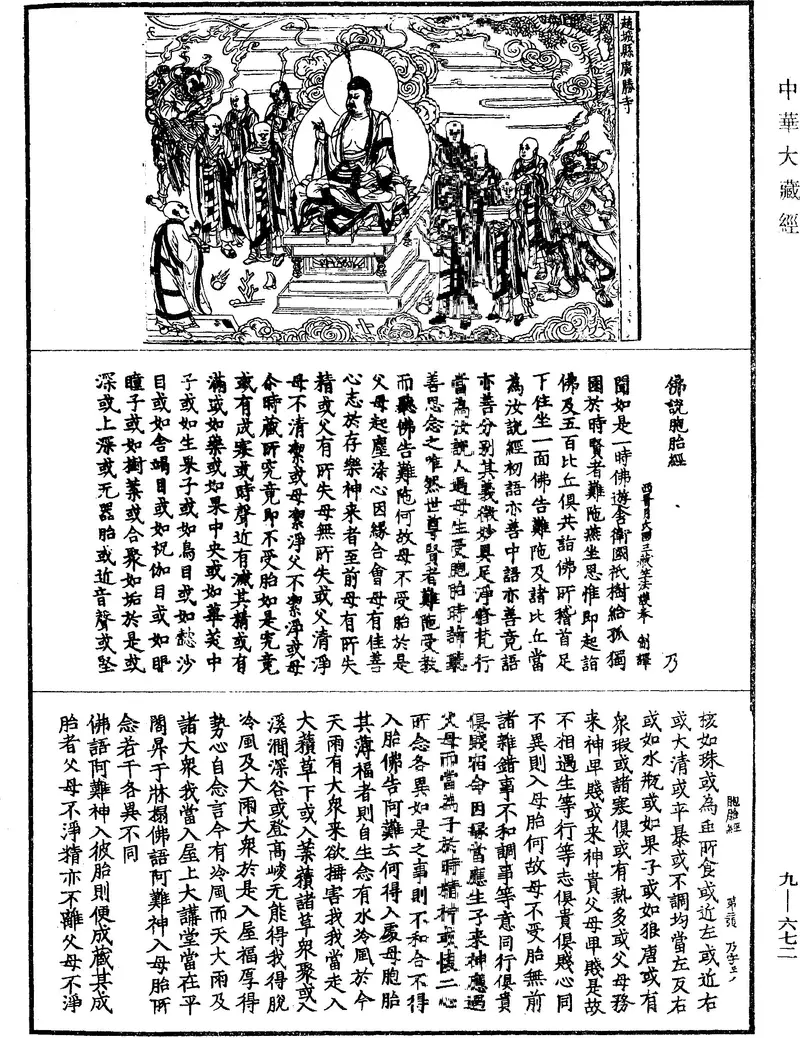 中華大藏經
趙城縣廣勝寺
佛說胞胎經　乃
西晉月氏國三藏竺法護奉　制譯
聞如是一時佛遊舍衛國祇樹給孤獨
園於時賢者難陁燕坐思惟即起詣
佛及五百比丘俱共詣佛所稽首足
下住坐一面佛告難陁及諸比丘當
為汝說經初語亦善中語亦善竟語
亦善分別其義微妙具足淨修梵行
當為汝說人遇母生受胞胎時諦聽
善思念之唯然世尊賢者難陁受教
而聽佛告難陁何故母不受胎於是
父母起塵染心因緣合會母有佳善
心志於存樂神來者至前母有所失
精或父有所失母無所失或父清淨
母不清潔或母潔淨父不潔淨或母
尒時藏所究竟即不受胎如是究竟
或有成寒或時聲近有滅其精或有
滿或如藥或如果中央或如蓽茇中
子或如生果子或如鳥目或如懿沙
目或如舍竭目或如祝伽目或如眼
瞳子或如樹葉或合聚如垢於是或
深或上深或无器胎或近音聲或堅
核如珠或為虫所食或近左或近右
或大清或平暴或不調均當左反右
或如水瓶或如果子或如狼唐或有
眾瑕或諸寒俱或有熱多或父母務
來神卑賤或來神貴父母卑賤是故
不相過生等行等志俱貴俱賤心同
不異則入母胎何故母不受胎無前
諸雜錯事不和調事等意同行俱貴
俱賤宿命因緣當應生子來神應遇
父母而當為子於時精神或懷二心
所念各異如是之事則不和合不得
入胎佛告阿難云何得入處母胞胎
其薄福者則自生念有水冷風於今
天雨有大眾來欲撾害我我當走入
大𧂐草下或入葉𧂐諸草眾聚或入
溪澗深谷或登高峻无能得我得脫
冷風及大雨大眾於是入屋福厚得
勢心自念言今有冷風而天大雨及
諸大眾我當入屋上大講堂當在平
閣昇于床榻佛語阿難神入母胎所
念若干各異不同
佛語阿難神入彼胎則便成藏其成
胎者父母不淨精亦不離父母不淨
胞胎經　第二張　乃字号
九—六七二